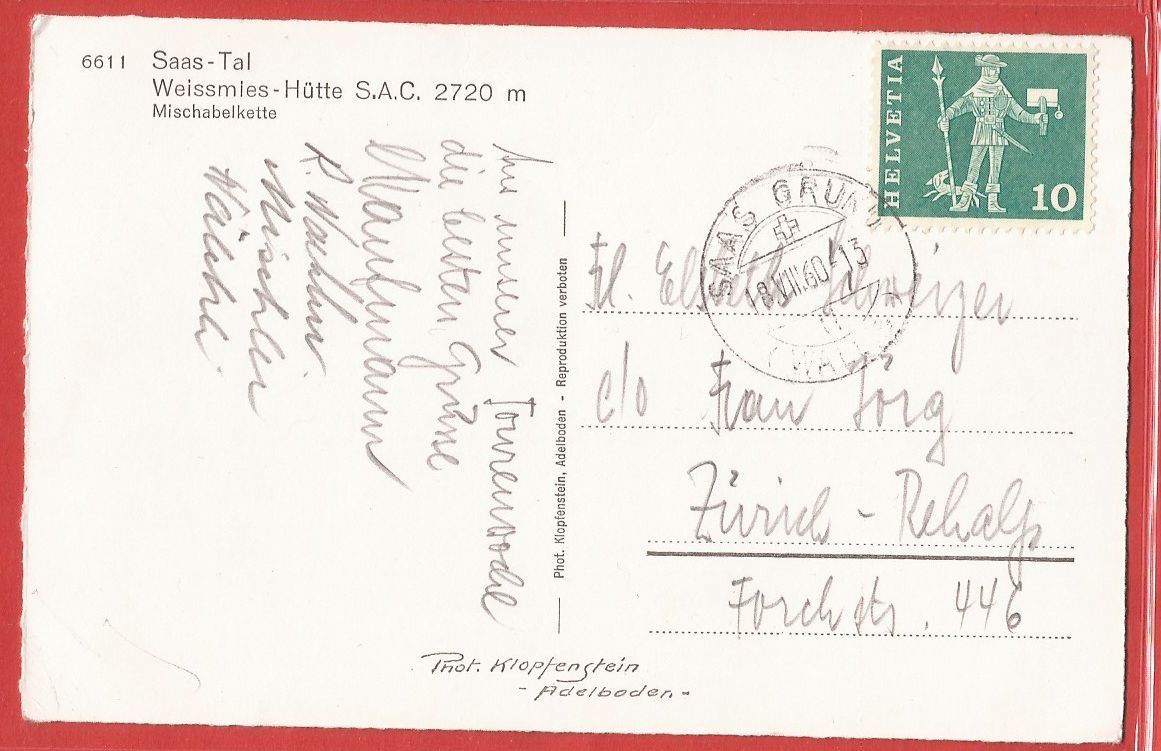 6611 Saas-Tal
Weissmies-Hütte S.A.C. 2720 m
Mischabelkette
unserer Tourenwoche
die besten Grüsse
R.
Phot. Klopfenstein, Adelboden - Reproduktion verboten
HELVETIA
10
SAAS GRUND
18.VIII.60-13
(WALLIS)
Fl. Elsbeth Schweizer
c/o Frau Jörg
Zürich - Rehalp
Forchstr. 446
Phot. Klopfenstein
- Adelboden -